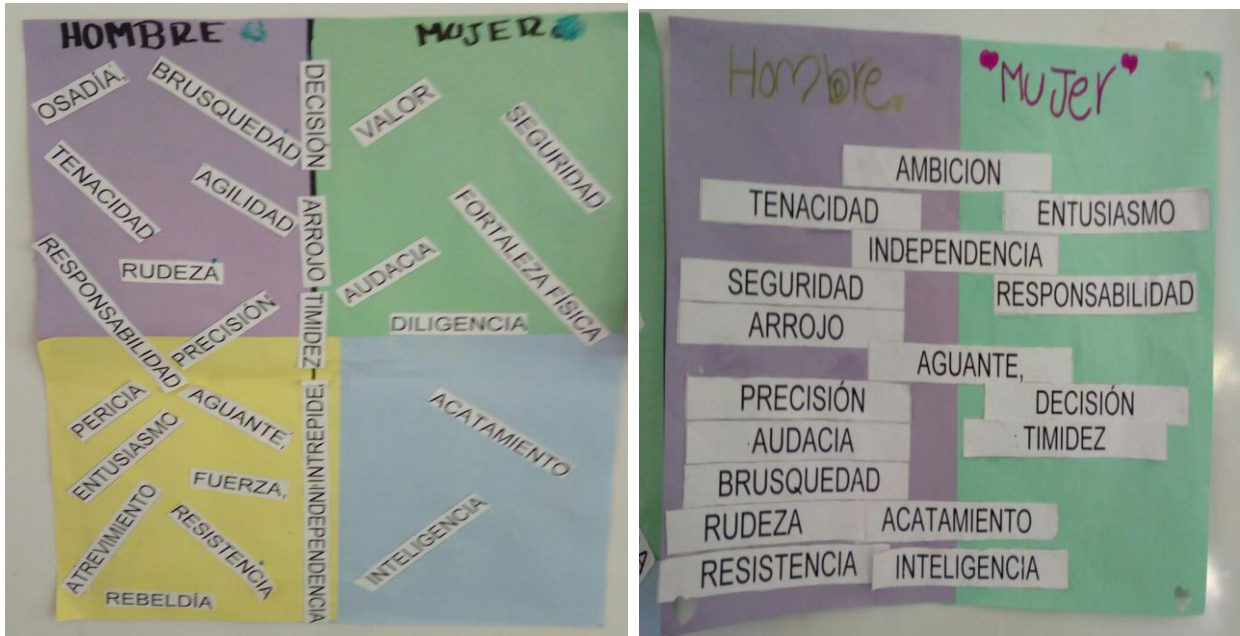 HOMBRE
MUJER
OSADÍA,
BRUSQUEDAD
TENACIDAD
AGILIDAD
RUDEZA
RESPONSABILIDAD
PRECISIÓN
PERICIA
AGUANTE,
ENTUSIASMO
FUERZA,
ATREVIMIENTO
RESISTENCIA
REBELDÍA
DECISIÓN
ARROJO
TIMIDEZ
INDEPENDENCIA
VALOR
SEGURIDAD
FORTALEZA FÍSICA
AUDACIA
DILIGENCIA
ACATAMIENTO
INTELIGENCIA
Hombre.
"Mujer"
AMBICION
TENACIDAD
ENTUSIASMO
INDEPENDENCIA
SEGURIDAD
RESPONSABILIDAD
ARROJO
AGUANTE,
PRECISIÓN
DECISIÓN
AUDACIA
TIMIDEZ
BRUSQUEDAD
RUDEZA
ACATAMIENTO
RESISTENCIA
INTELIGENCIA